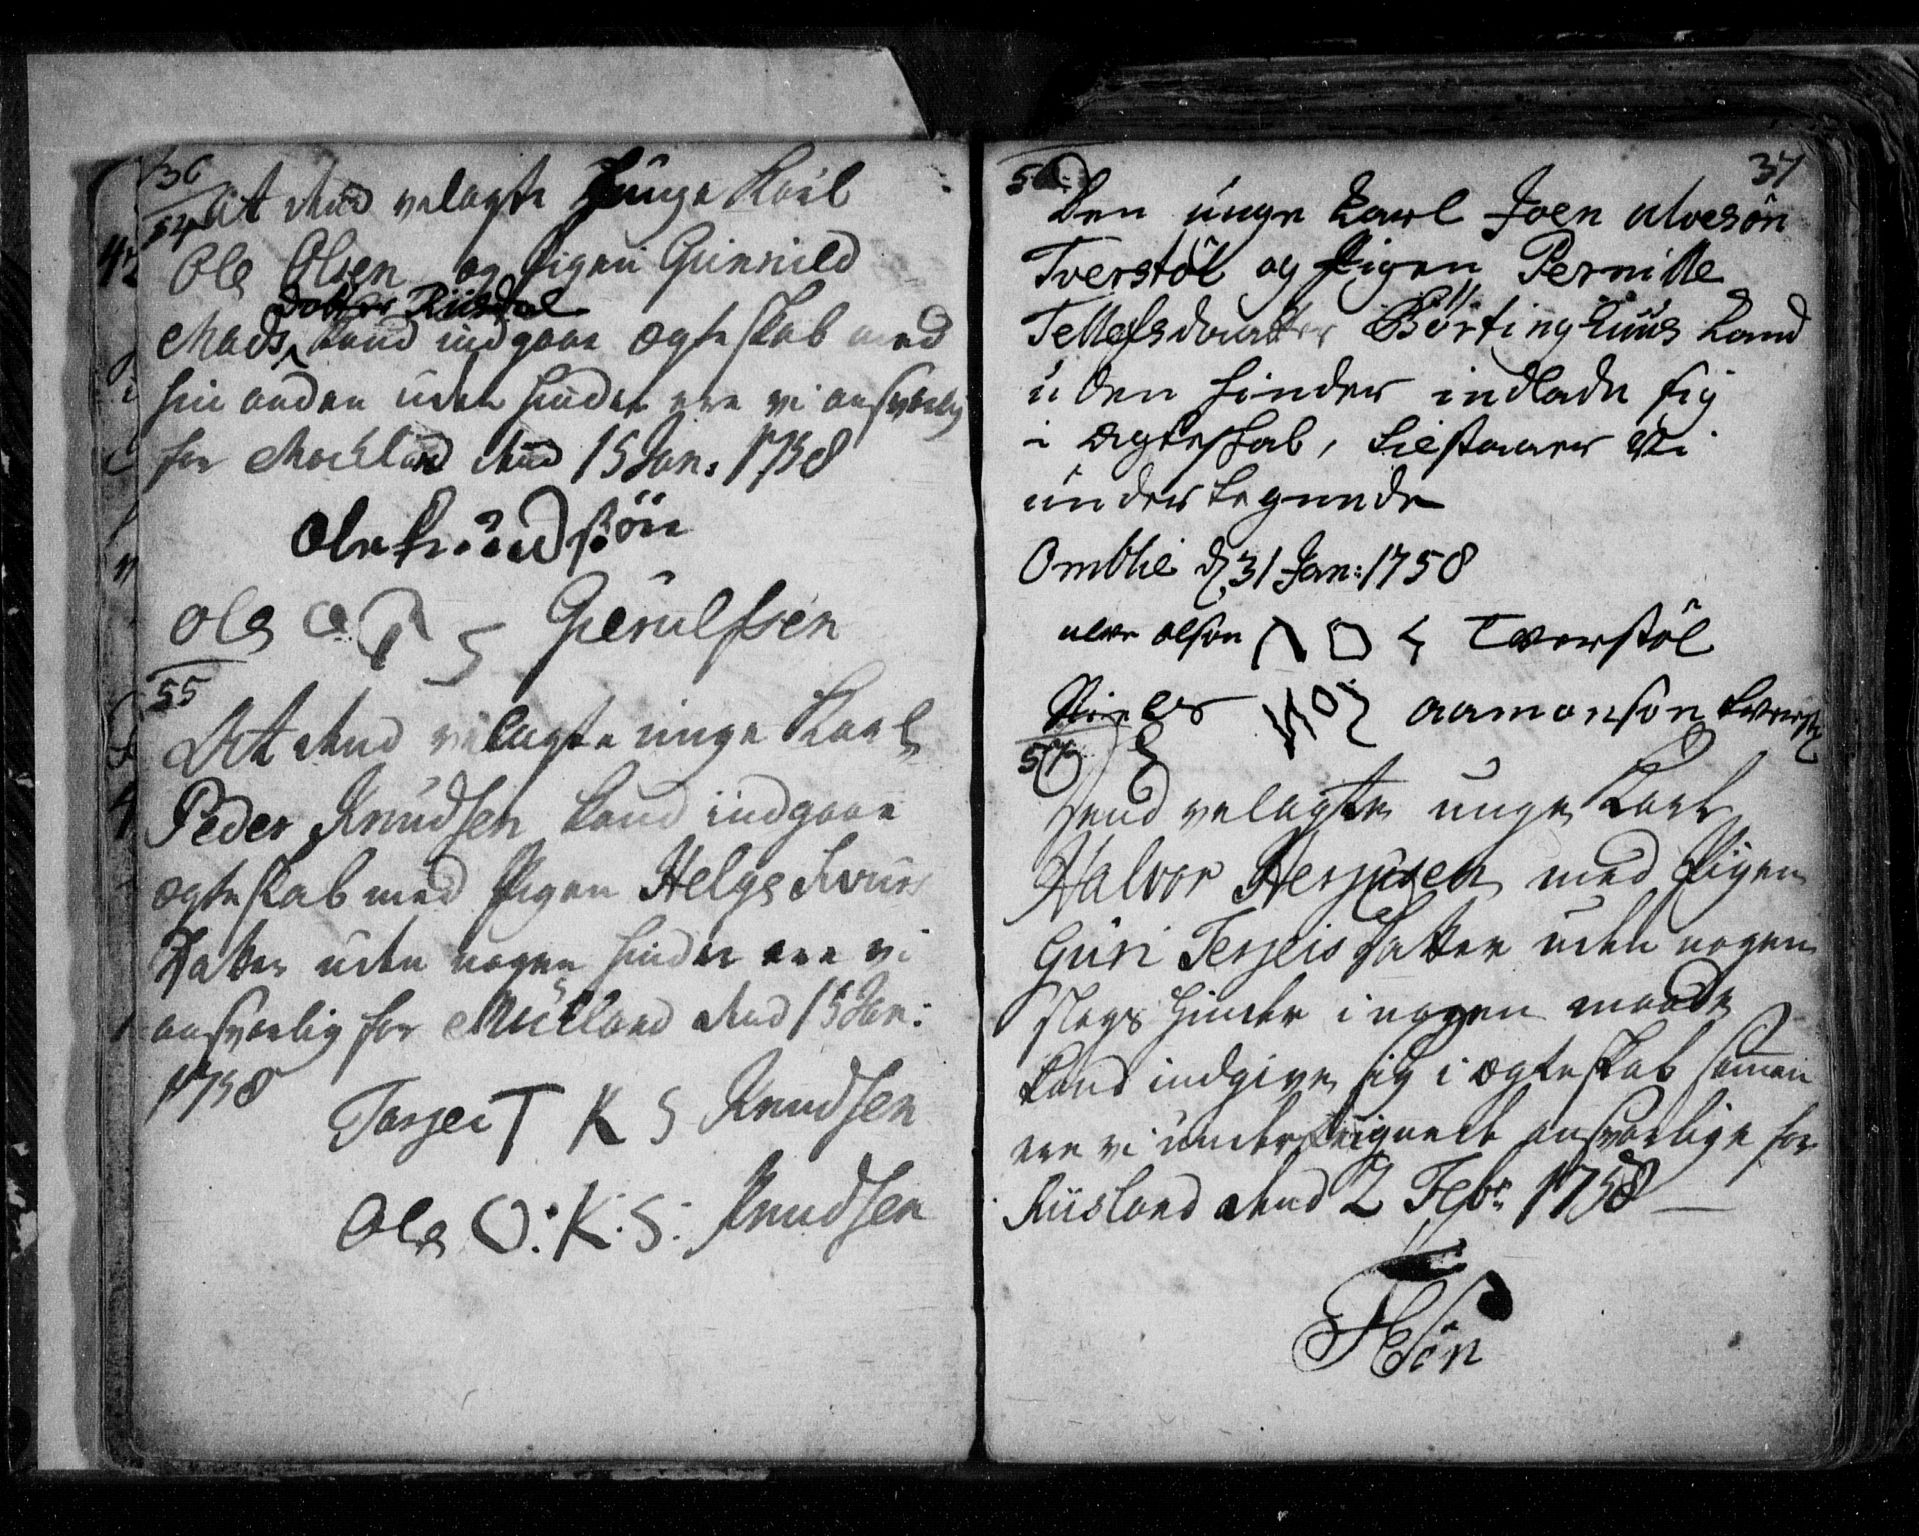 36
54
At dend velagte Hunge Karl
Ole Olsen og Pigen Gunnild
Dotter Riisdal
Mads kand indgaae Ægteskab med
hin anden uden hinder ere vi ansvarlig
for Mockland dend 15 Jan: 1758
Ole
Ole S Gierulfsen
55
At dend velagte unge Karl
Peder Knudsen kand indgaae
Ægteskab med Pigen Helge
Datter uden nogen hinder ere vi
ansvarlig for Mückland dend 15 Jan:
1758
Tarjei T K S Knudsen
Ole O: K: S: Knudsen
37
56
Den unge Karl Joen Alvesön
Tverstöl og Pigen Pernille
Tellefsdaatter Börtinghuus kand
uden hinder indlade sig
i Ægteskab, tilstaaer Vi
undertegnede
Omblie d. 31 Jan: 1758
alve olson Twerstøl
Niels aamonson
57
dend velagte unge Karl
Halvor Herjusen med Pigen
Guri Terjeis Datter uden nogen
slags hinder i nogen maade
kand indgive sig i Ægteskab samen
ere vi underteignede ansvarlige for
Riisland dend 2 Febr: 1758